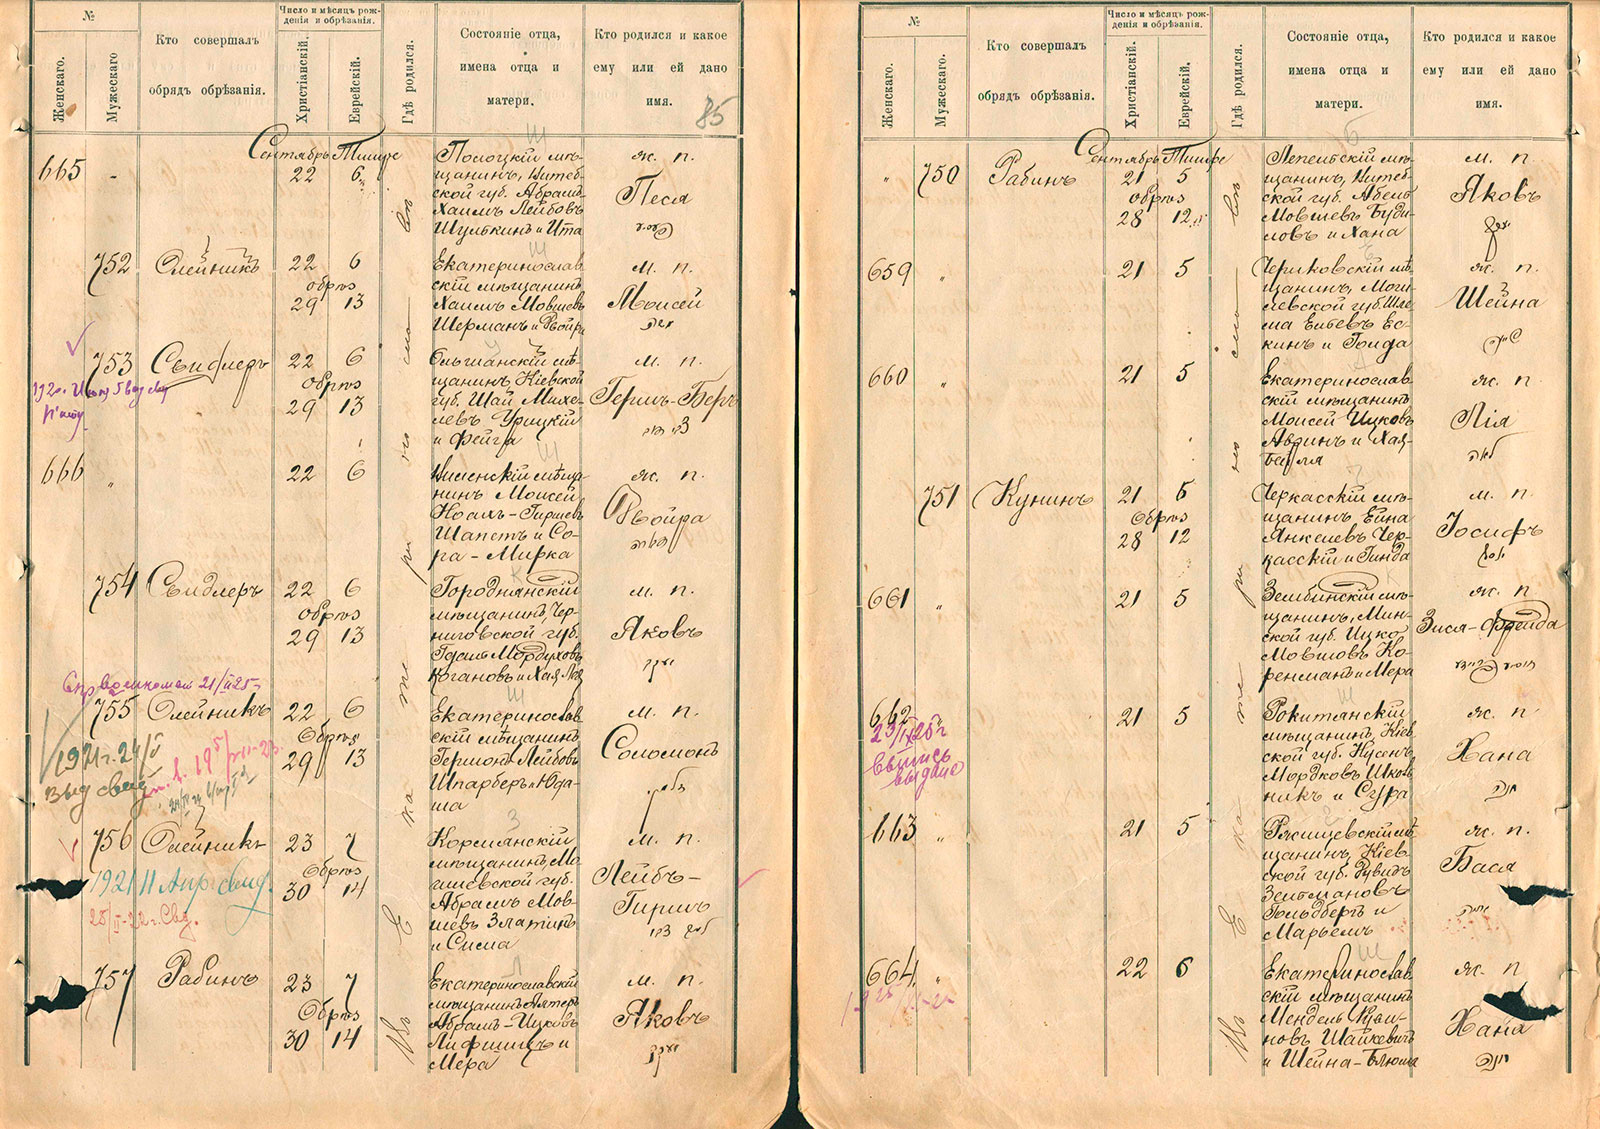 №
Женскаго.
Мужескаго
Кто совершалъ
обрядъ обрѣзанія.
Число и мѣсяцъ рож-
денія и обрѣзанія.
Христіанскій.
Еврейскій.
Гдѣ родился.
Состояніе отца,
имена отца и
матери.
Кто родился и какое
ему или ей дано
имя.
85
665
Сентябрь Тишре
22 6
Полоцкій мѣ-
щанинъ, Витеб-
ской губ. Абрамъ
Хаимъ Лейбовъ
Шулькинъ и Ита
ж. п.
Песя
752
Олейникъ
22 6
обрѣз
29 13
Екатеринослав
скій мѣщанинъ
Хаимъ Мовшевъ
Шерманъ и Двойра
м. п.
Моисей
משה
753
Свидлеръ
22 6
Обрѣз
29 13
Ольшанскій мѣ-
щанинъ Кіевской
губ. Шай Михе-
левъ Урицкій
и Фейга
м. п.
Гершъ-Беръ
666
22 6
Моисей
Ноахъ-Гиршевъ
и Со-
ра-Мирка
ж. п.
Двойра
דווירה
754
Свидлеръ
22 6
обрѣз
29 13
Городнянскій
мѣщанинъ, Чер-
ниговской губ.
Мордуховъ
Когановъ и Хая
м. п.
Яковъ
יעקב
21/II 25
755
Олейникъ
22 6
Обрѣз
29 13
Екатеринослав
скій мѣщанинъ
Гершонъ Лейбовъ
Шпарберъ и Юда-
ша
м. п.
Соломонъ
1921 г. 24/V
выд свид
756
Олейникъ
23 7
Обрѣз
30 14
Кормянскій
мѣщанинъ, Мо-
гилевской губ.
Абрамъ Мов-
шевъ Златинъ
и Сима
м. п.
Лейбъ-
Гиршъ
לייב הירש
1921 11 Апр свид.
25/II-22 г. Свд.
757
Рабинъ
23 7
Обрѣз
30 14
Екатеринославскій
мѣщанинъ Алтеръ
Абрамъ-Ицковъ
Лифшицъ и
Мера
м. п.
Яковъ
יעקב
Въ Екатеринославѣ
№
Женскаго.
Мужескаго.
Кто совершалъ
обрядъ обрѣзанія.
Число и мѣсяцъ рож-
денія и обрѣзанія.
Христіанскій.
Еврейскій.
Гдѣ родился.
Состояніе отца,
имена отца и
матери.
Кто родился и какое
ему или ей дано
имя.
" 750
Рабинъ
Сентябрь Тишре
21 5
обрѣз
28 12
Лепельскій мѣ-
щанинъ, Витеб-
ской губ. Абель
Мовшевъ Буди-
ловъ и Хана
м. п
Яковъ
יעקב
659 "
21 5
Чериковскій мѣ-
щанинъ, Моги-
левской губ. Шле-
ма Ельевъ Ес-
кинъ и Голда
ж. п.
Шейна
שיינה
660 "
21 5
Екатеринослав
скій мѣщанинъ
Моисей Ицковъ
Авринъ и Хая-
Бейля
ж. п
Лія
לאה
751
Кунинъ
21 6
Обрѣз
28 12
Черкасскій мѣ-
щанинъ Ейна
Анкелевъ Чер-
касскій и Гинда
м. п
Іосифъ
יוסף
661 "
21 5
Зембинскій мѣ-
щанинъ, Мин-
ской губ. Ицко
Мовшовъ Ко-
ренманъ и Мера
ж. п
Зися-Фрейда
זיסע פריידע
662 "
23/IX 25 г
выпись
выдано
21 5
Рокитянскій
мѣщанинъ, Кіев-
ской губ. Нусенъ
Мордковъ Школь
никъ и Сура
ж. п
Хана
חנה
663 "
21 5
Ряснцевскій мѣ
щанинъ Кіев-
ской губ. Дувидъ
Зейлмановъ
Гольдбергъ и
Марьемъ
ж. п.
Бася
664 "
22 6
Екатеринослав
скій мѣщанинъ
Мендель Куши-
новъ Шайкевичъ
и Шейна-Блюма
ж. п
Хана
חנה
Въ Екатеринославѣ